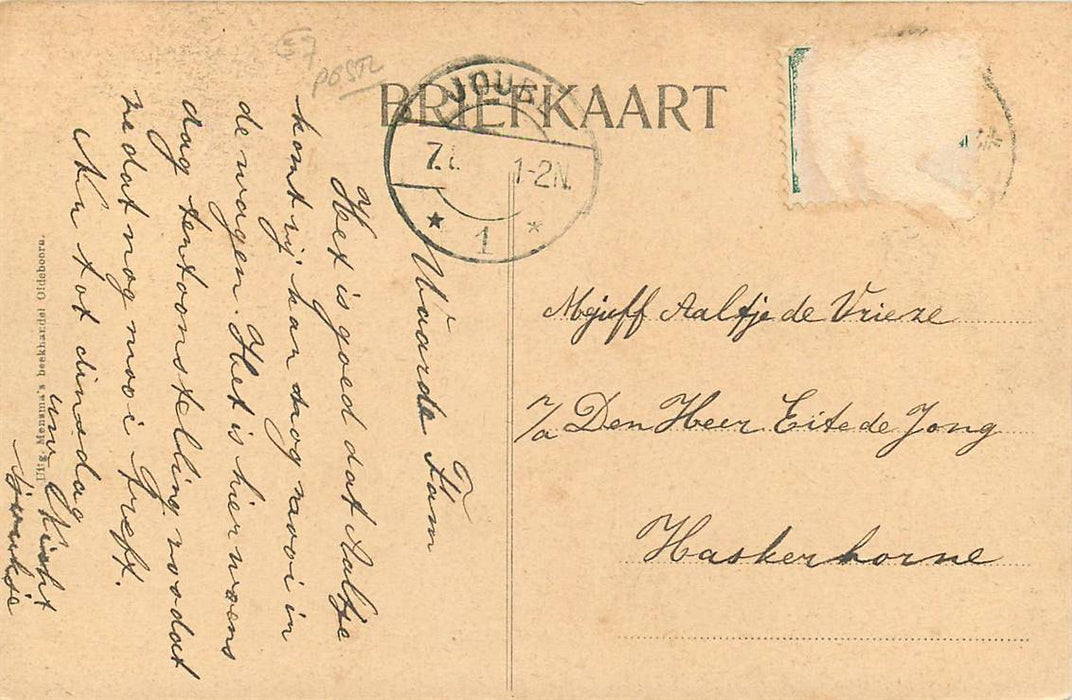 57
POSTZ
BRIEFKAART
JOURE
7. 1-2N.
1
Waarde Fam
Het is goed dat Aaltje
komt zij kan nog mooi in
de wagen. Het is hier woens
dag tentoonstelling zoodat
ze dat nog mooi treft.
Nu tot dinsdag
uw Nicht
Uitg. Mensma's boekhandel Oldeboorn.
Mejuff Aaltje de Vrieze
p/a Den Heer Eite de Jong
Haskerhorne